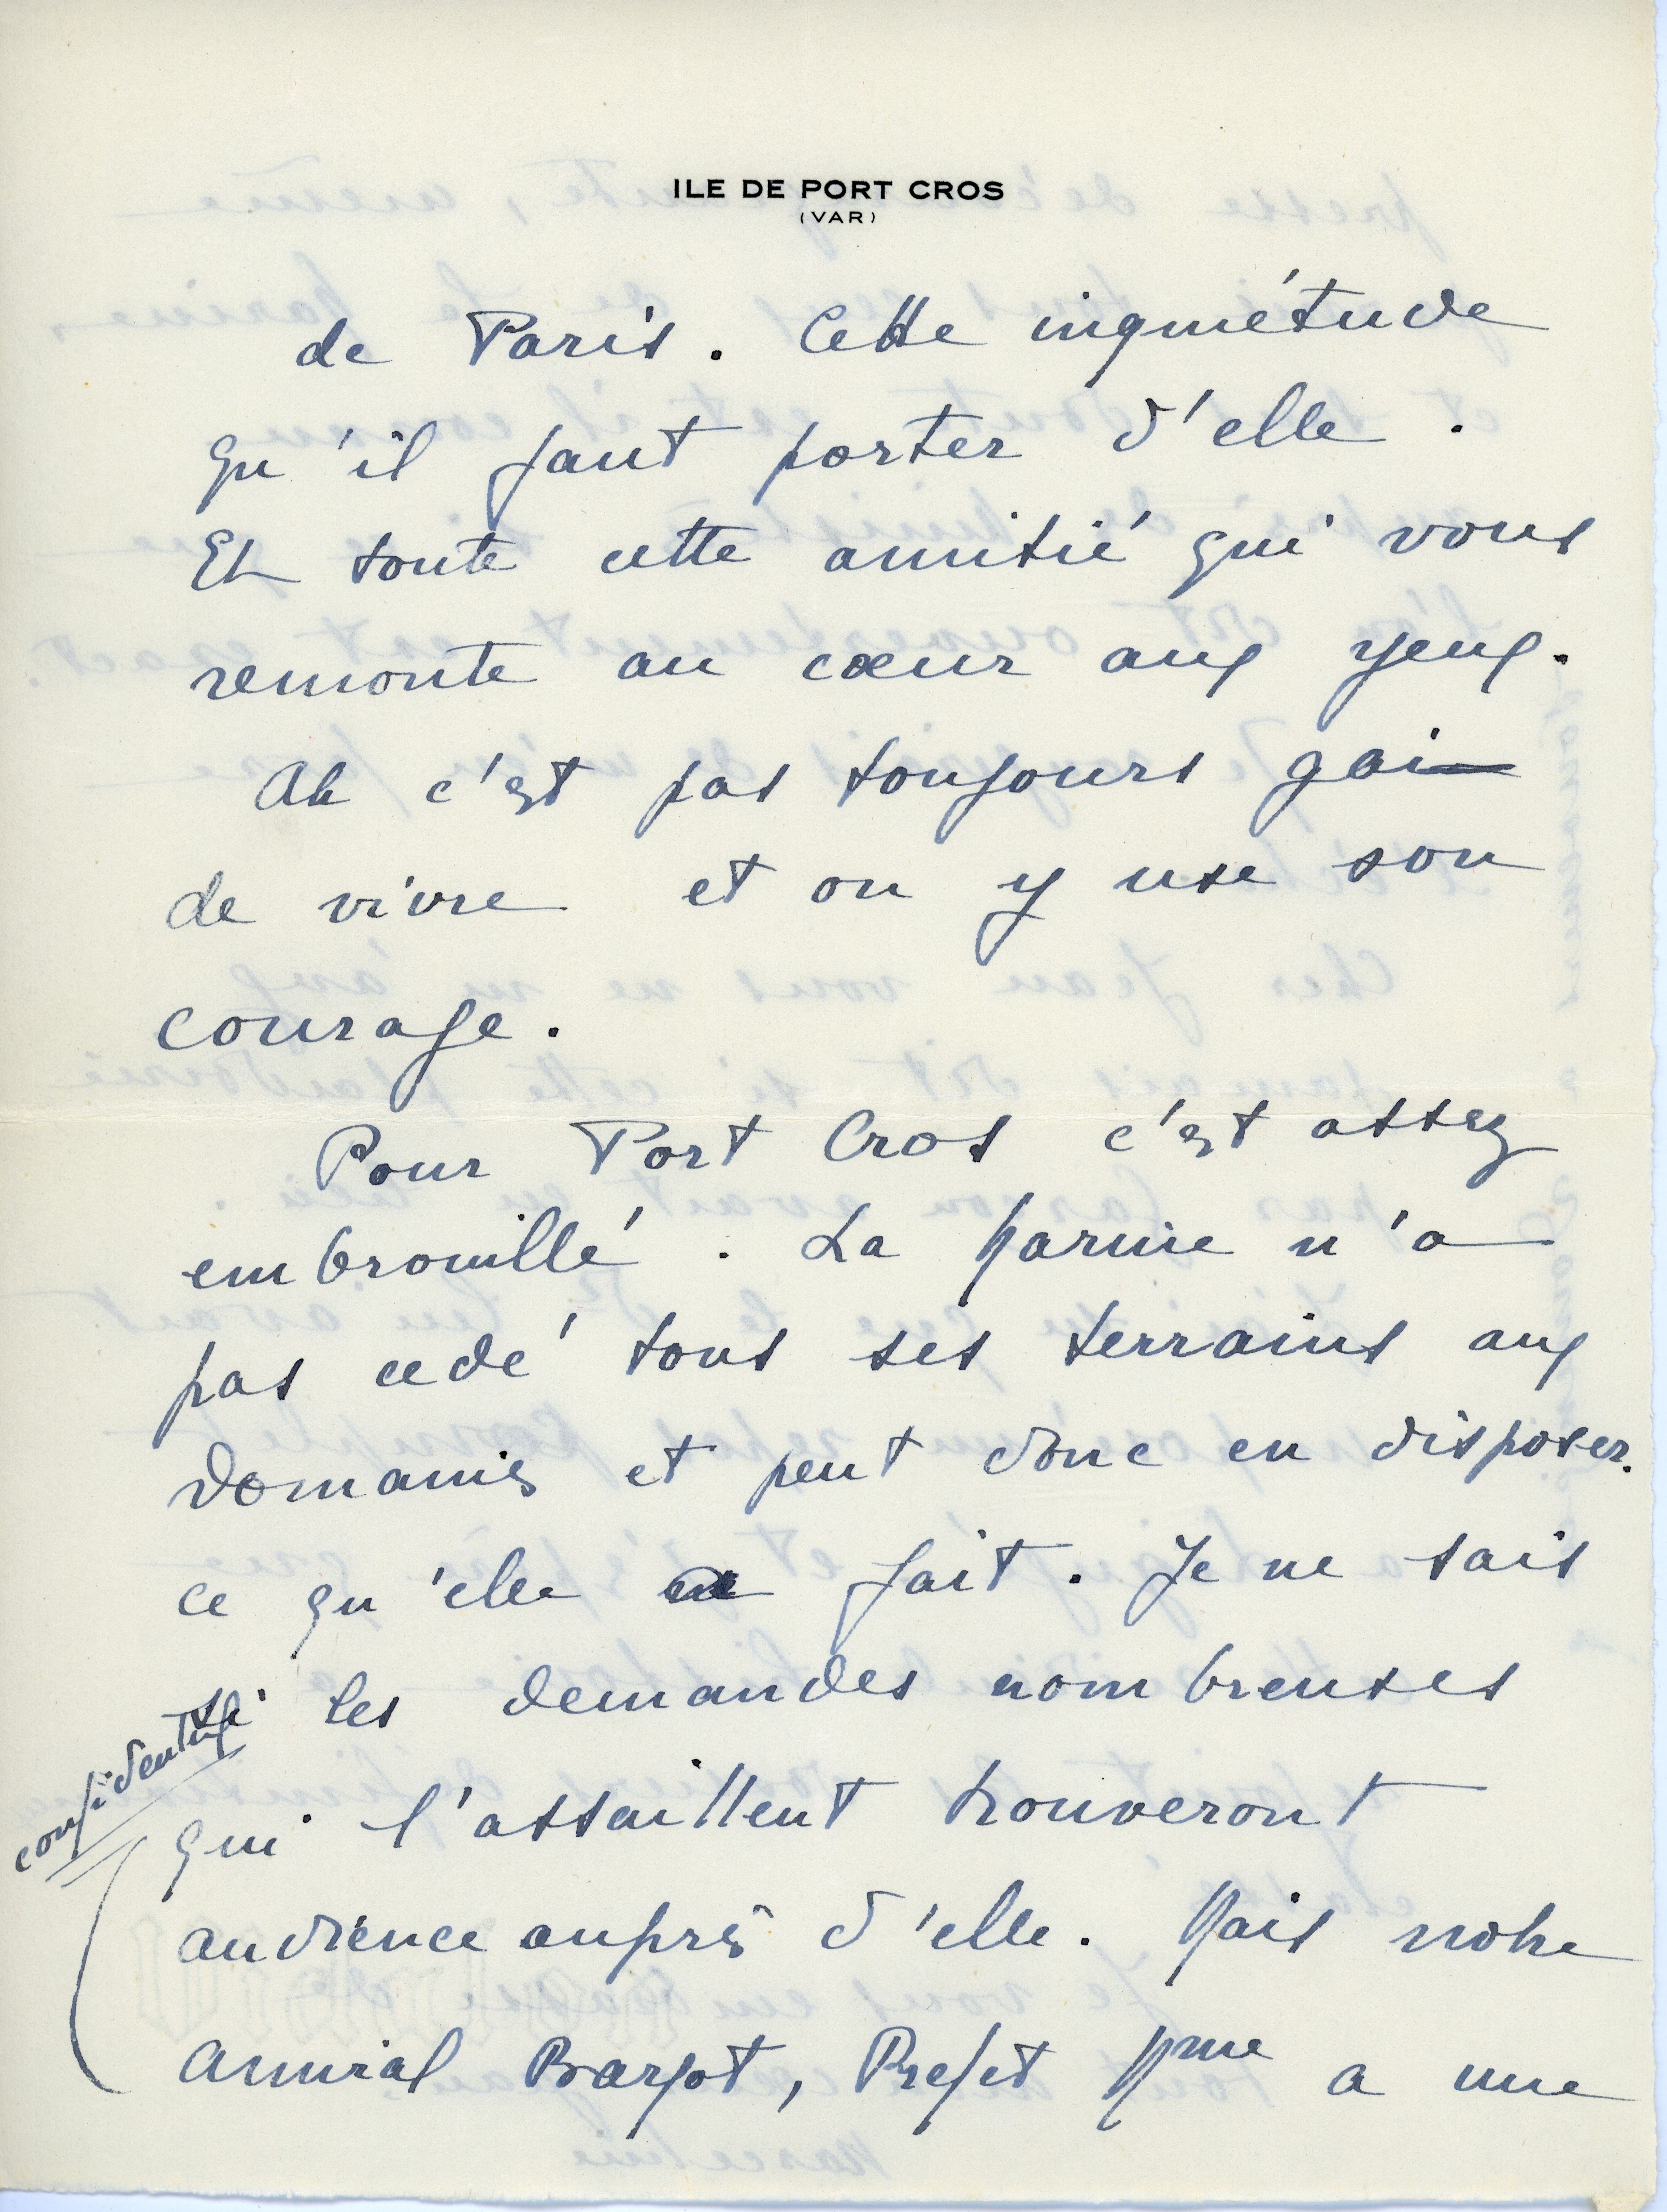 ILE DE PORT CROS
(VAR)
de Paris. Cette inquiétude
qu'il faut porter d'elle.
Et toute cette amitié qui vous
remonte au cœur aux yeux.
Ah c'est pas toujours gai
de vivre et on y use son
courage.
Pour Port Cros c'est assez
embrouillé. La Marine n'a
pas cedé tous ses terrains aux
Domaines et peut donc en disposer.
ce qu'elle fait. Je ne sais
si les demandes nombreuses
confidentiel
qui l'assaillent trouveront
audience auprès d'elle. Mais notre
Amiral Barjot, Prefet Mme a une